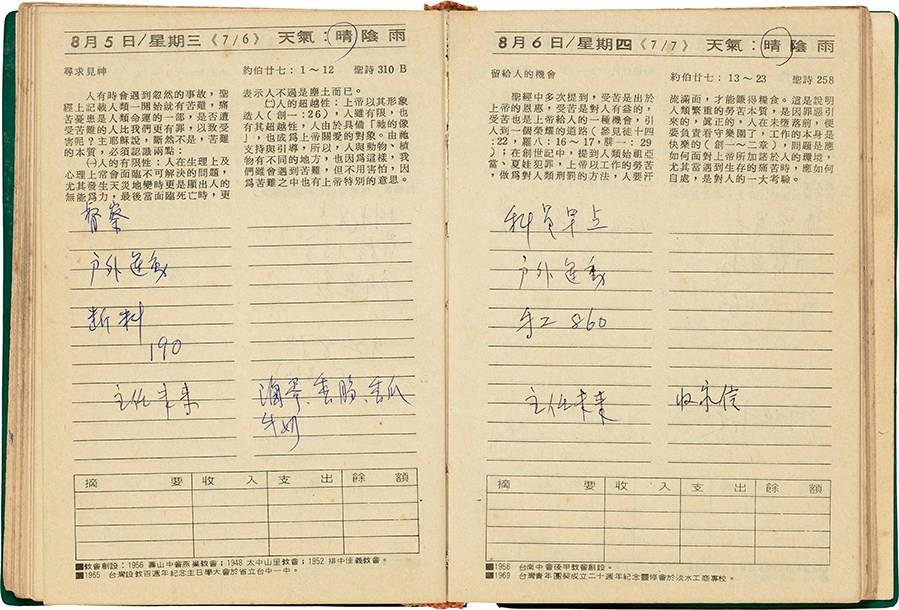 8月5日/星期三《7/6》 天氣：晴陰雨
尋求見神 約伯廿七：1～12 聖詩310 B
人有時會遇到忽然的事故，聖
經上記載人類一開始就有苦難，痛
苦憂患是人類命運的一部，是否遭
受苦難的人比我們更有罪，以致受
害呢？主耶穌說，斷然不是，苦難
的本質，必須認識兩點：
㈠人的有限性：人在生理上及
心理上常會面臨不可解決的問題，
尤其發生天災地變時更是顯出人的
無能爲力，最後當面臨死亡時，更
表示人不過是塵土而已。
㈡人的超越性：上帝以其形象
造人（創一：26），人類有「祂的像
」，也成爲上帝關愛的對象。由祂
支持與引導，所以，人與動物、植
物有不同的地方，也因爲這樣，我
們雖會遇到苦難，但不用害怕，因
爲苦難之中也有上帝特別的意思。
督察
戶外運動
断料
190
主任未來
滷蛋、香腸、香瓜
牛奶
摘要 收入 支出 餘額
■教會創設：1956 壽山中會燕巢教會；1948 太中山里教會；1952 排中佳義教會。
■1965 台灣設教百週年紀念主日學大會於省立台中一中。
8月6日/星期四《7/7》 天氣：晴陰雨
留給人的機會 約伯廿七：13～23 聖詩258
聖經中多次提到，受苦是出於
上帝的恩惠，受苦是對人有益的，
受苦也是上帝給人的一種機會，引
人到一個榮耀的道路（參見徒十四
:22，羅八：16～17，腓一：29
）；在創世記中，提到人類始祖亞
當、夏娃犯罪，上帝以工作的勞苦
做爲對人類刑罰的方法，人要汗
流滿面，才能賺得糧食。這是說明
人類繁重的勞苦，是因罪惡引
來的，眞正的，人未墮落前，便
要負責看守樂園了，工作的本身是
快樂的（創一～二章），問題是應
如何面對上帝所加諸於人的環境，
尤其當遇到生存的痛苦時，應如何
自處，是對人的一大考驗。
科員早点
戶外運動
手工 860
主任未來
收家信
摘要 收入 支出 餘額
■1956 台南中會後甲教會創設。
■1969 台灣青年團契成立二十週年紀念靈修會於淡水工商專校。